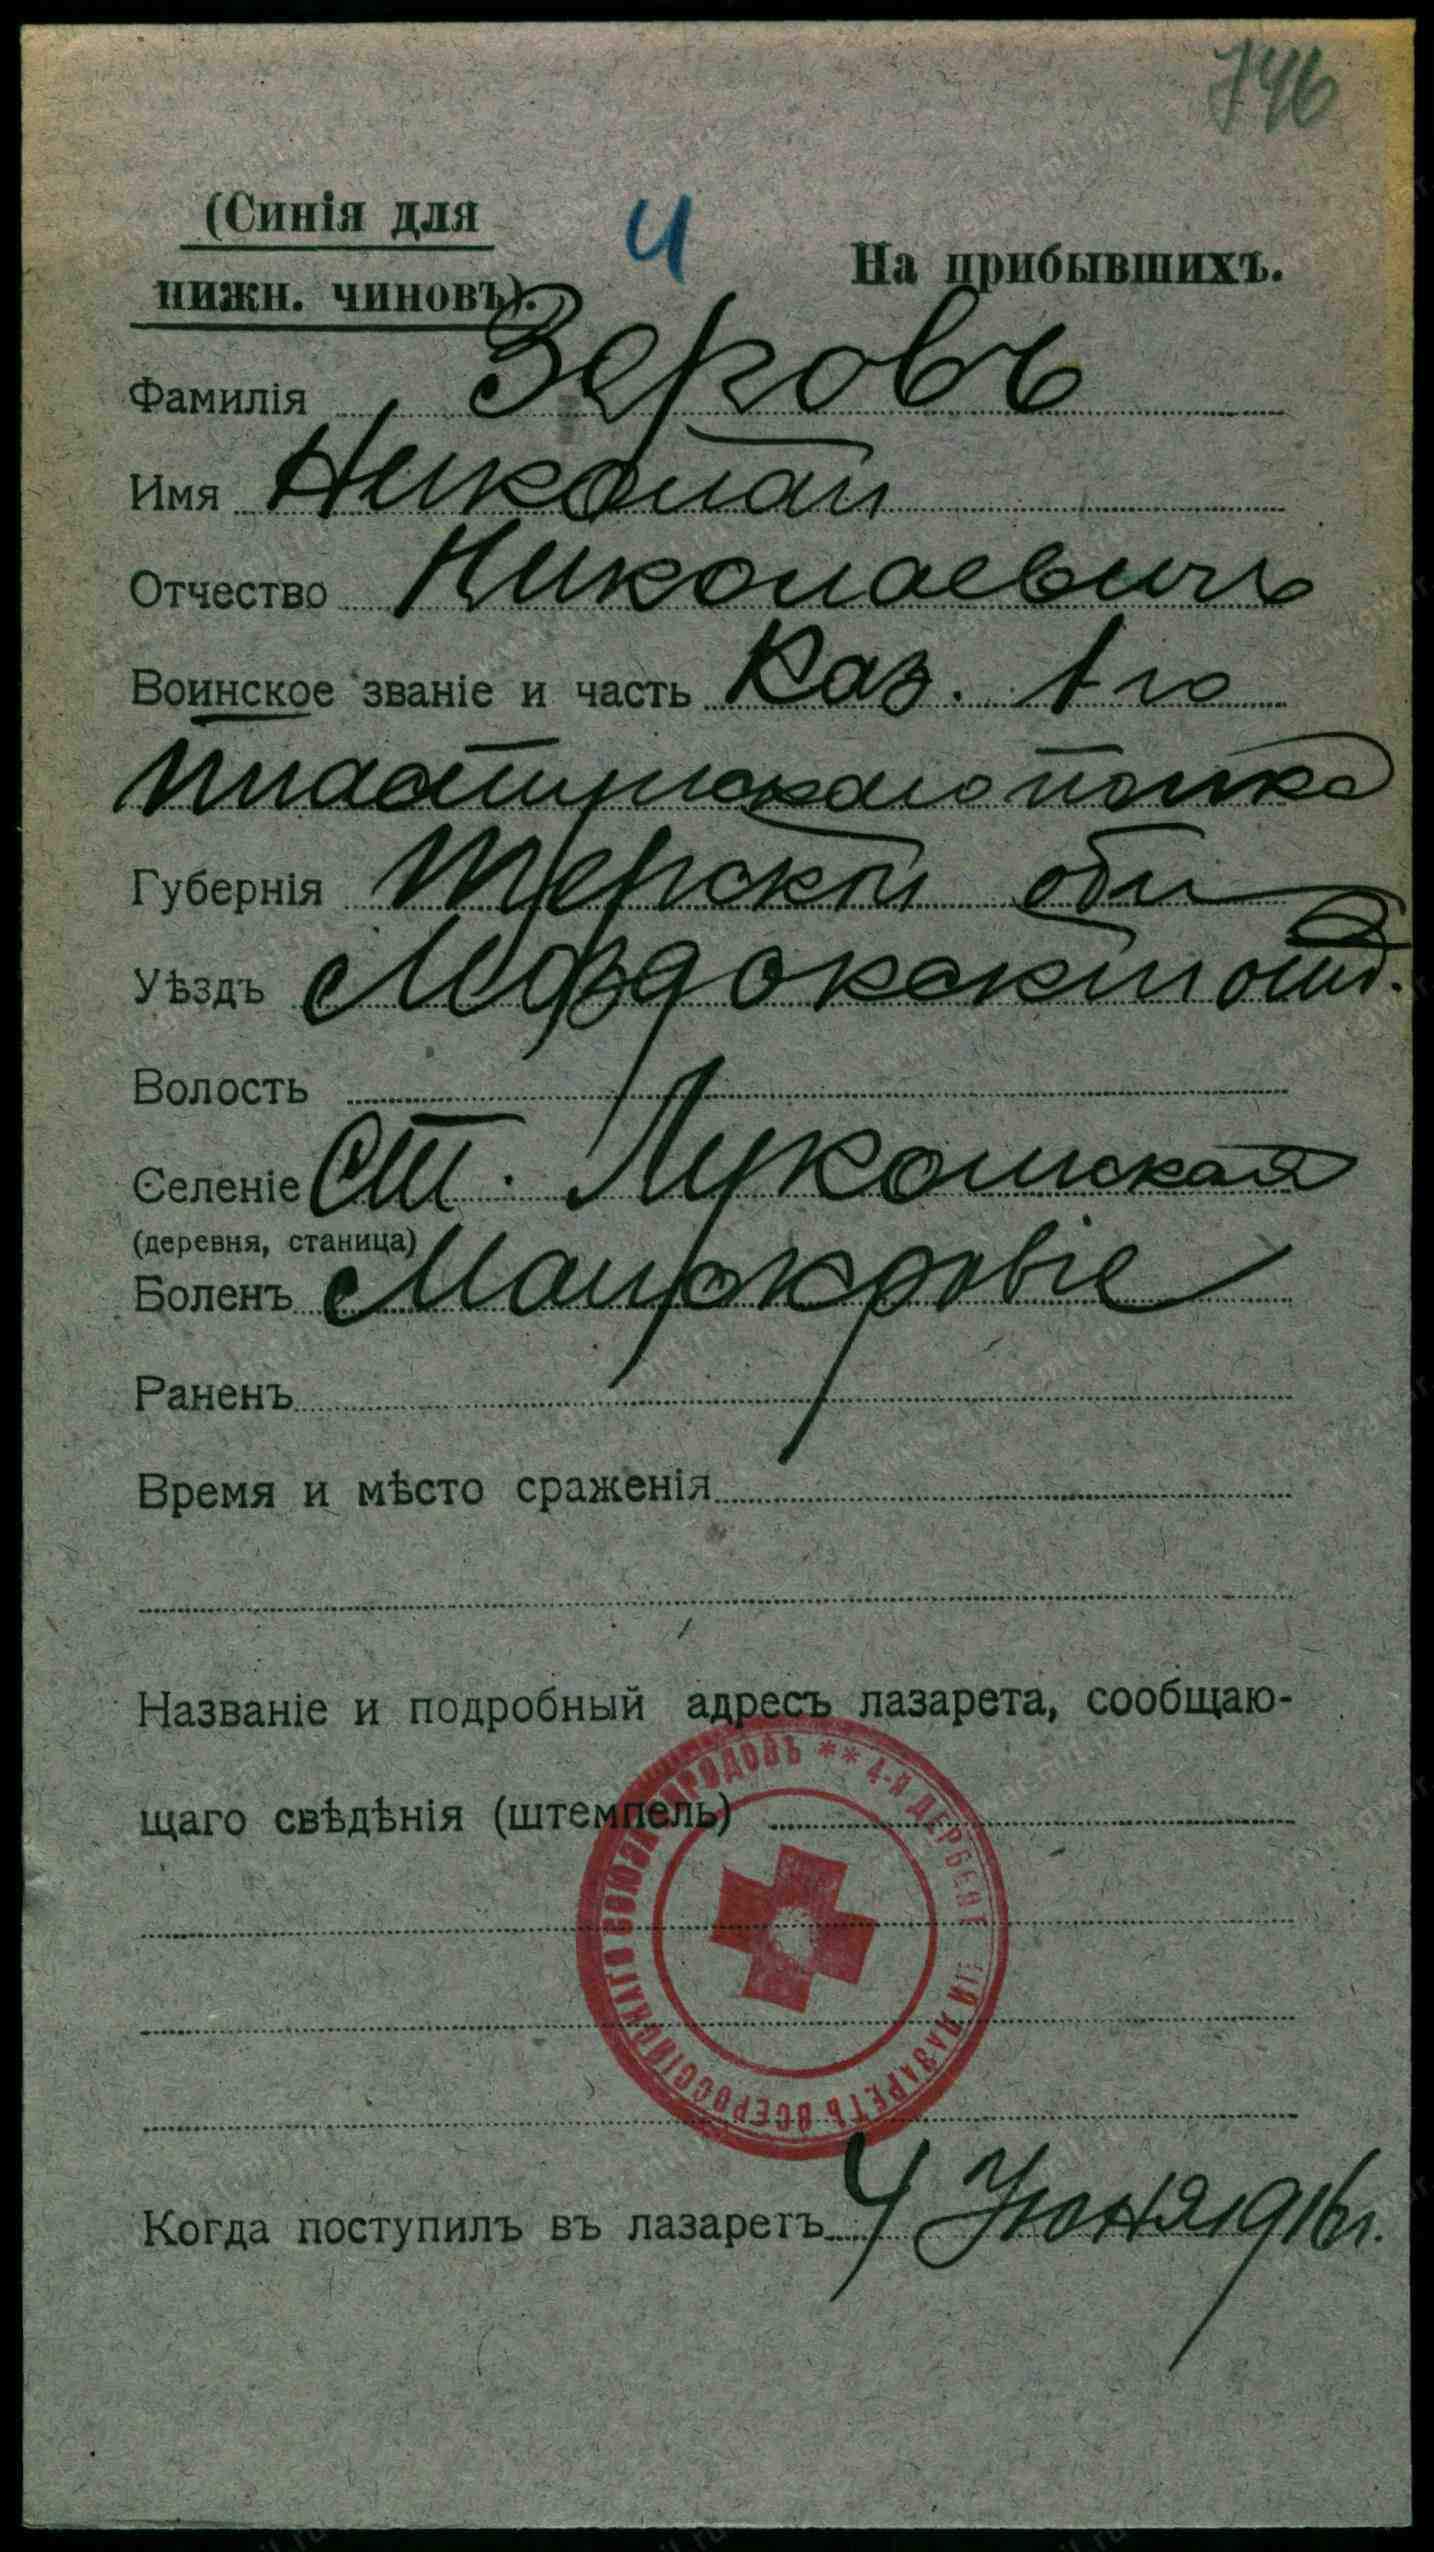 746
(Синія для
нижн. чиновъ).
4
На прибывшихъ.
Фамилія Зеровъ
Имя Николай
Отчество Николаевичъ
Воинское званіе и часть Каз. 1го
пластунскаго полка
Губернія Терской обл
Уѣздъ Моздокскій отд.
Волость
Селеніе Ст. Лукомская
(деревня, станица)
Боленъ Малокровіе
Раненъ
Время и мѣсто сраженія
Названіе и подробный адресъ лазарета, сообщаю-
щаго свѣдѣнія (штемпель)
** 4-й ДЕРБЕНТ ІЙ ЛАЗАРЕТЪ ВСЕРОССІЙСКАГО СОЮЗА ГОРОДОВЪ
Когда поступилъ въ лазаретъ 4 Июня 1916 г.